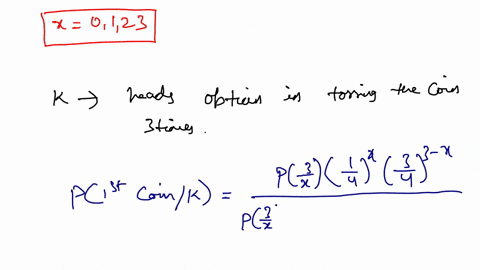 x = 0,1,23
K → heads obtain in tossing the Coin
3times.
P(1st Coin/K) = P(3/x)(1/4)^x (3/4)^3-x
P(3/x